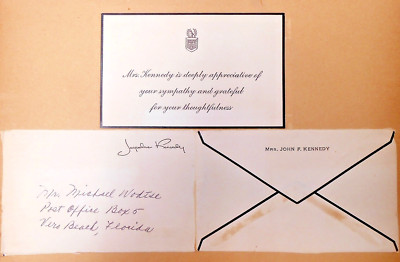 Mrs. Kennedy is deeply appreciative of
your sympathy and grateful
for your thoughtfulness
Jacqueline Kennedy
Michael
Post Office Box 5
Vero Beach, Florida
MRS. JOHN F. KENNEDY